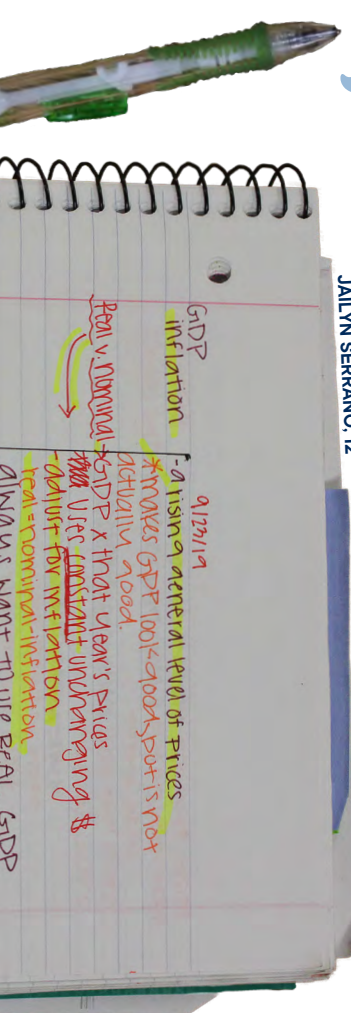 JAILYN SERRANO, 12
9/23/19
GDP
inflation - a rising general level of prices
*makes GDP look good, but is not
actually good.
Real v. nominal → GDP x that year's prices
uses constant unchanging $
- adjust for inflation
- real = nominal - inflation
always want to use REAL GDP